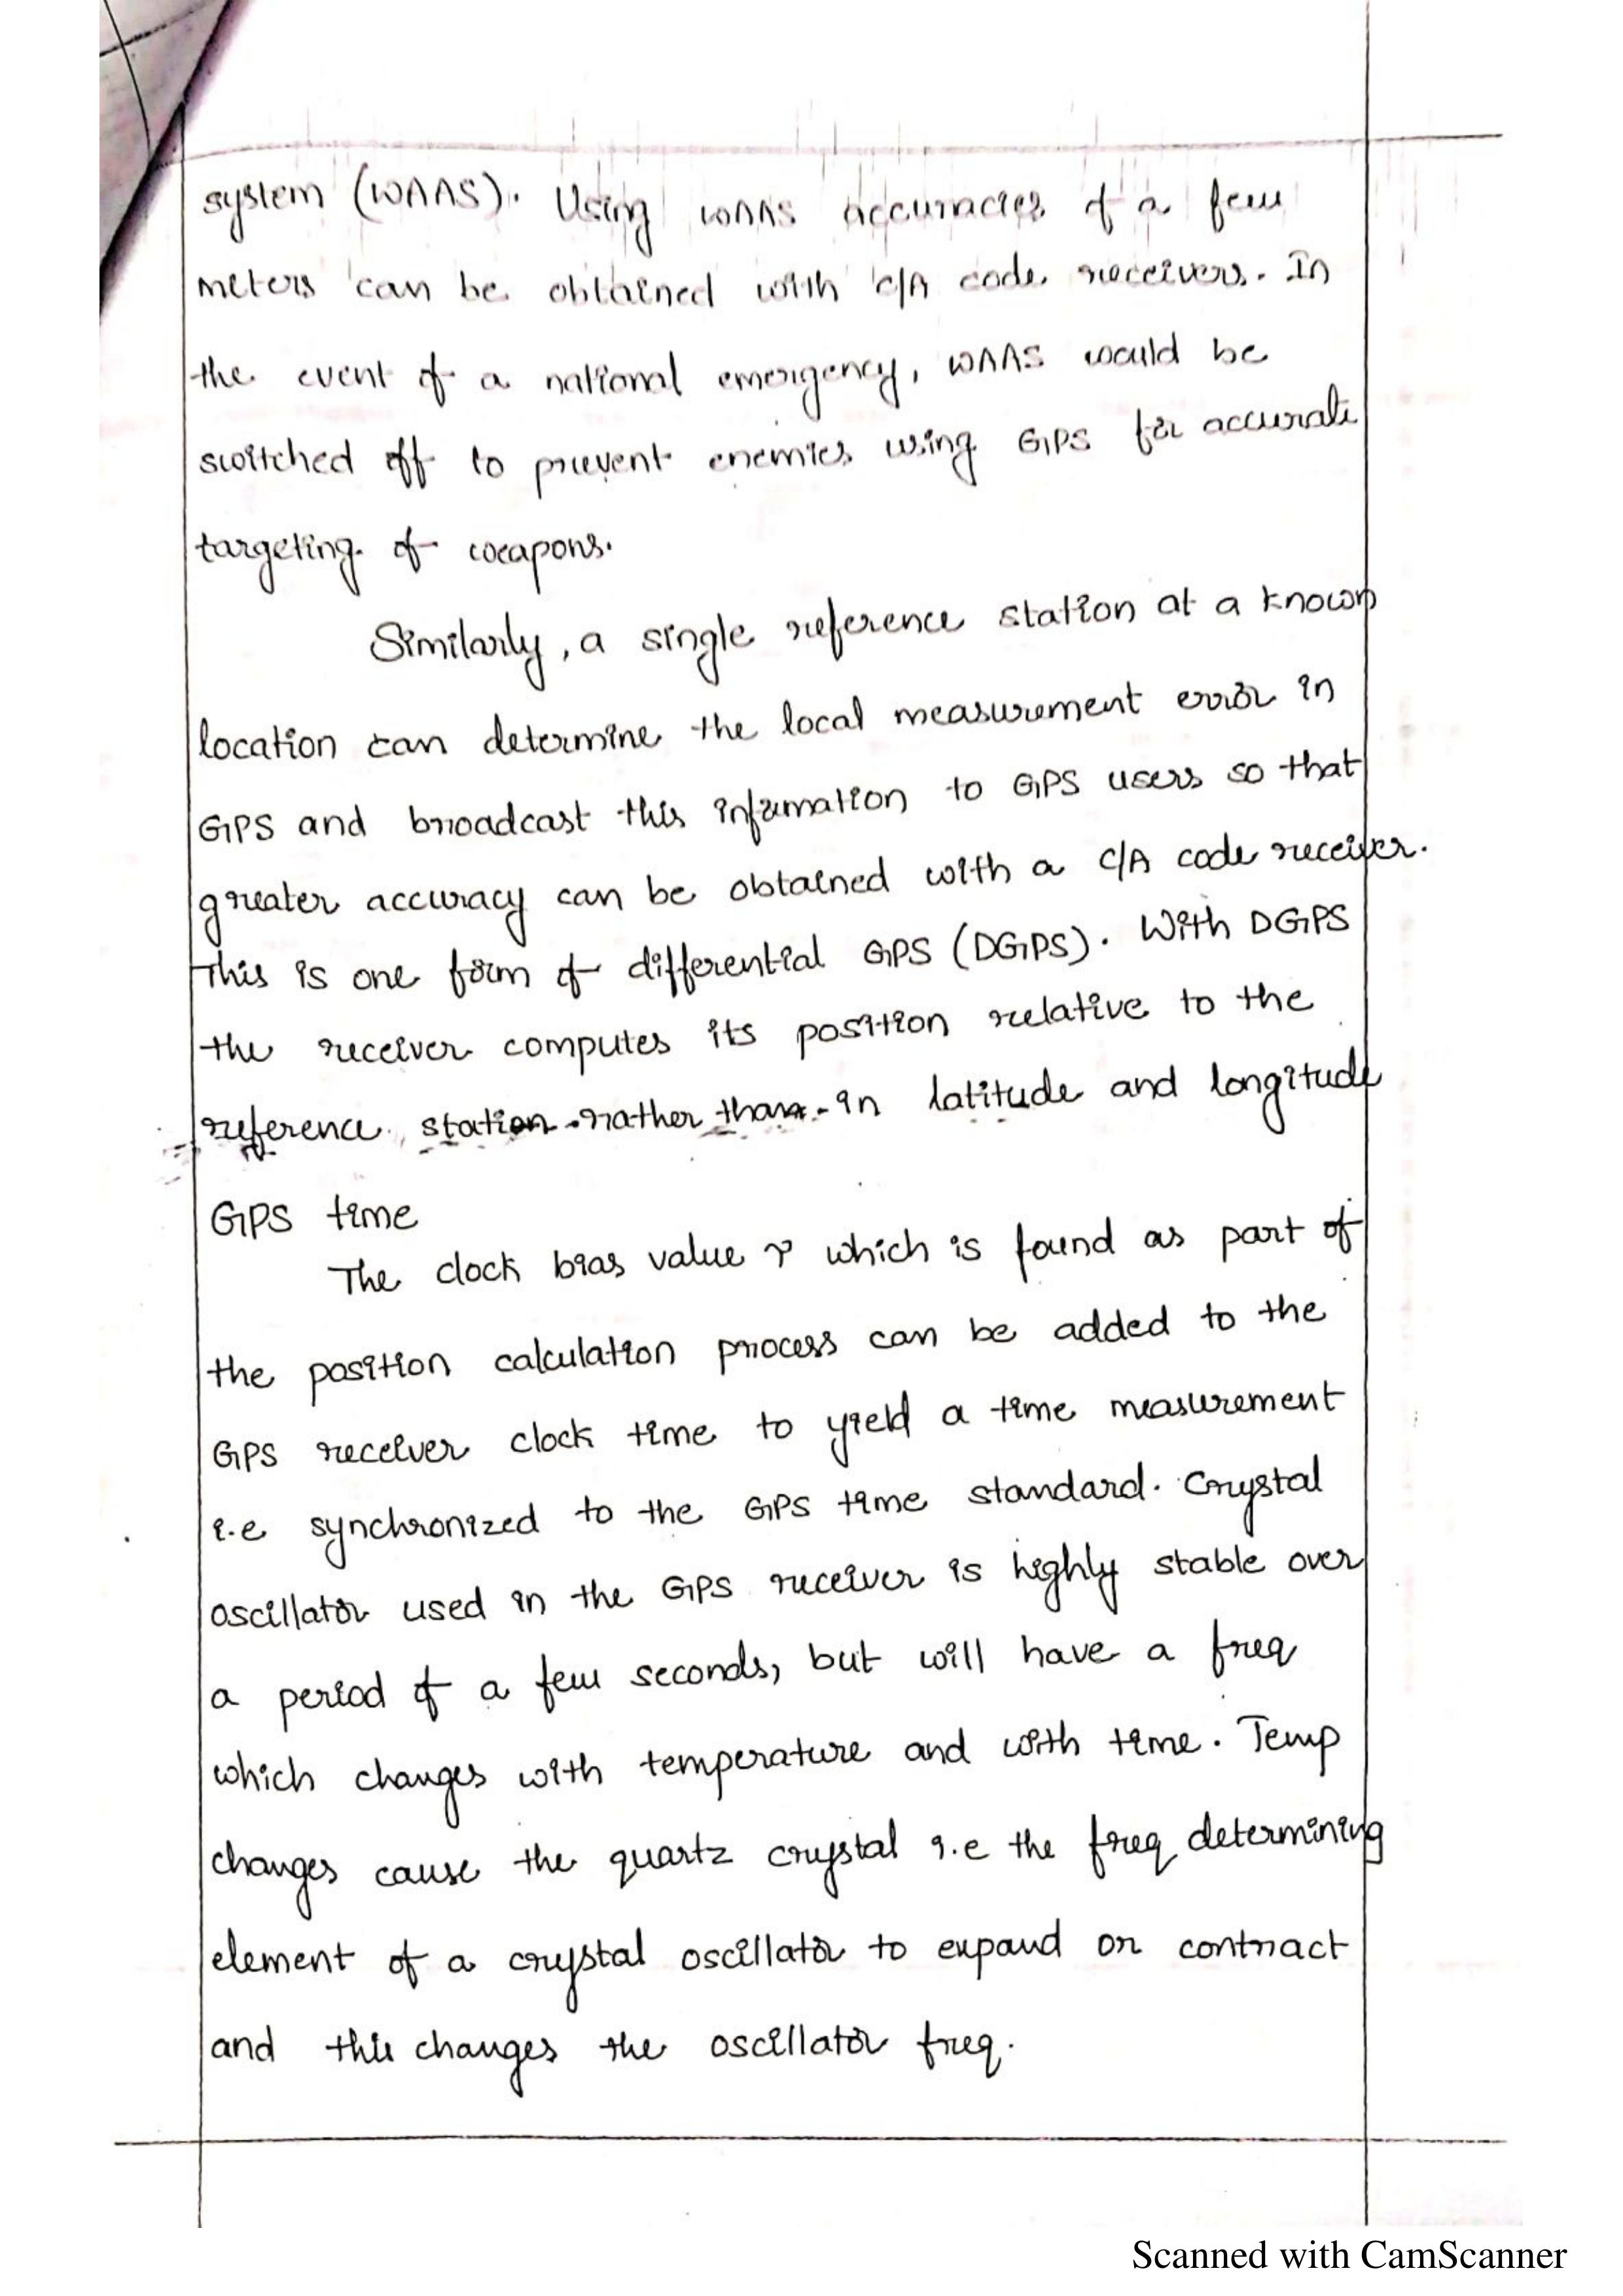 system (WAAS). Using WAAS accuracies of a few
meters can be obtained with C/A code receivers. In
the event of a national emergency, WAAS would be
switched off to prevent enemies using GPS for accurate
targeting of weapons.
Similarly, a single reference station at a known
location can determine the local measurement error in
GPS and broadcast this information to GPS users so that
greater accuracy can be obtained with a C/A code receiver.
This is one form of differential GPS (DGPS). With DGPS
the receiver computes its position relative to the
reference station rather than in latitude and longitude
GPS time
The clock bias value τ which is found as part of
the position calculation process can be added to the
GPS receiver clock time to yield a time measurement
i.e synchronized to the GPS time standard. Crystal
oscillator used in the GPS receiver is highly stable over
a period of a few seconds, but will have a freq
which changes with temperature and with time. Temp
changes cause the quartz crystal i.e the freq determining
element of a crystal oscillator to expand or contract
and this changes the oscillator freq.
Scanned with CamScanner